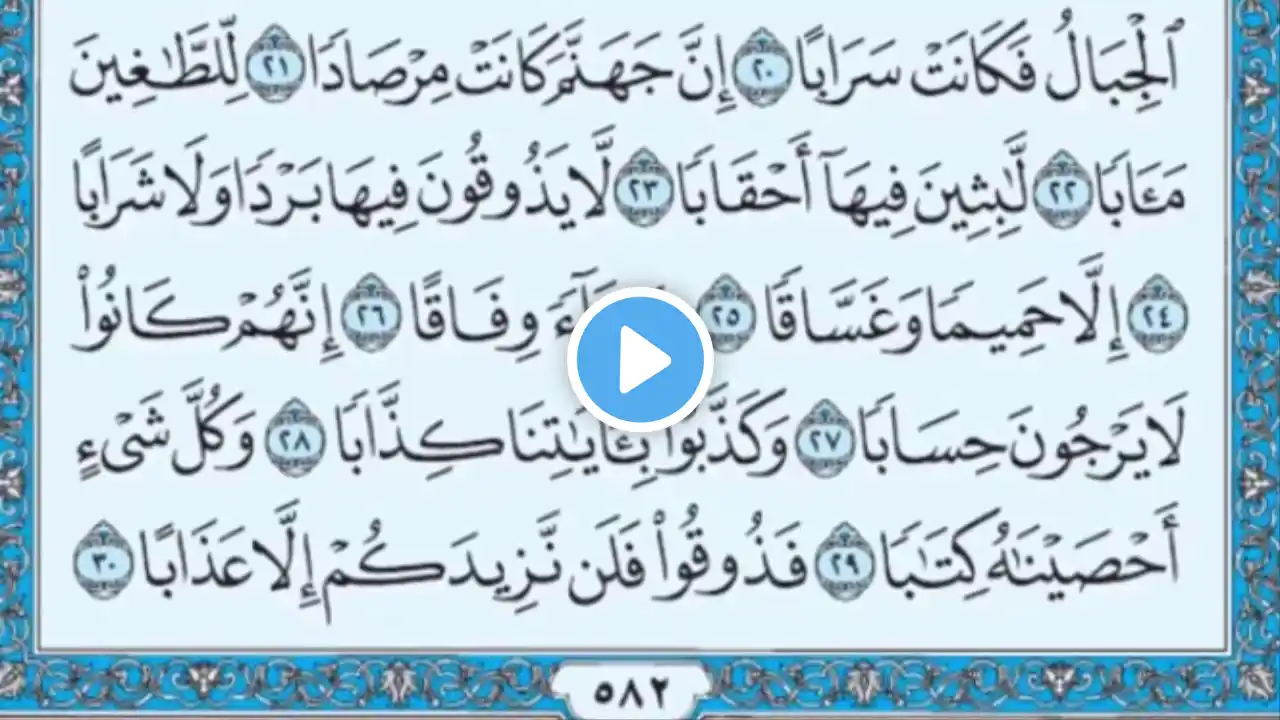 ٱلْجِبَالُ فَكَانَتْ سَرَابًا ٢٠ إِنَّ جَهَنَّمَ كَانَتْ مِرْصَادًا ٢١ لِّلطَّٰغِينَ
مَـَٔابًا ٢٢ لَّٰبِثِينَ فِيهَآ أَحْقَابًا ٢٣ لَّا يَذُوقُونَ فِيهَا بَرْدًا وَلَا شَرَابًا
٢٤ إِلَّا حَمِيمًا وَغَسَّاقًا ٢٥ وِفَاقًا ٢٦ إِنَّهُمْ كَانُوا۟
لَا يَرْجُونَ حِسَابًا ٢٧ وَكَذَّبُوا۟ بِـَٔايَٰتِنَا كِذَّابًا ٢٨ وَكُلَّ شَىْءٍ
أَحْصَيْنَٰهُ كِتَٰبًا ٢٩ فَذُوقُوا۟ فَلَن نَّزِيدَكُمْ إِلَّا عَذَابًا ٣٠
٥٨٢